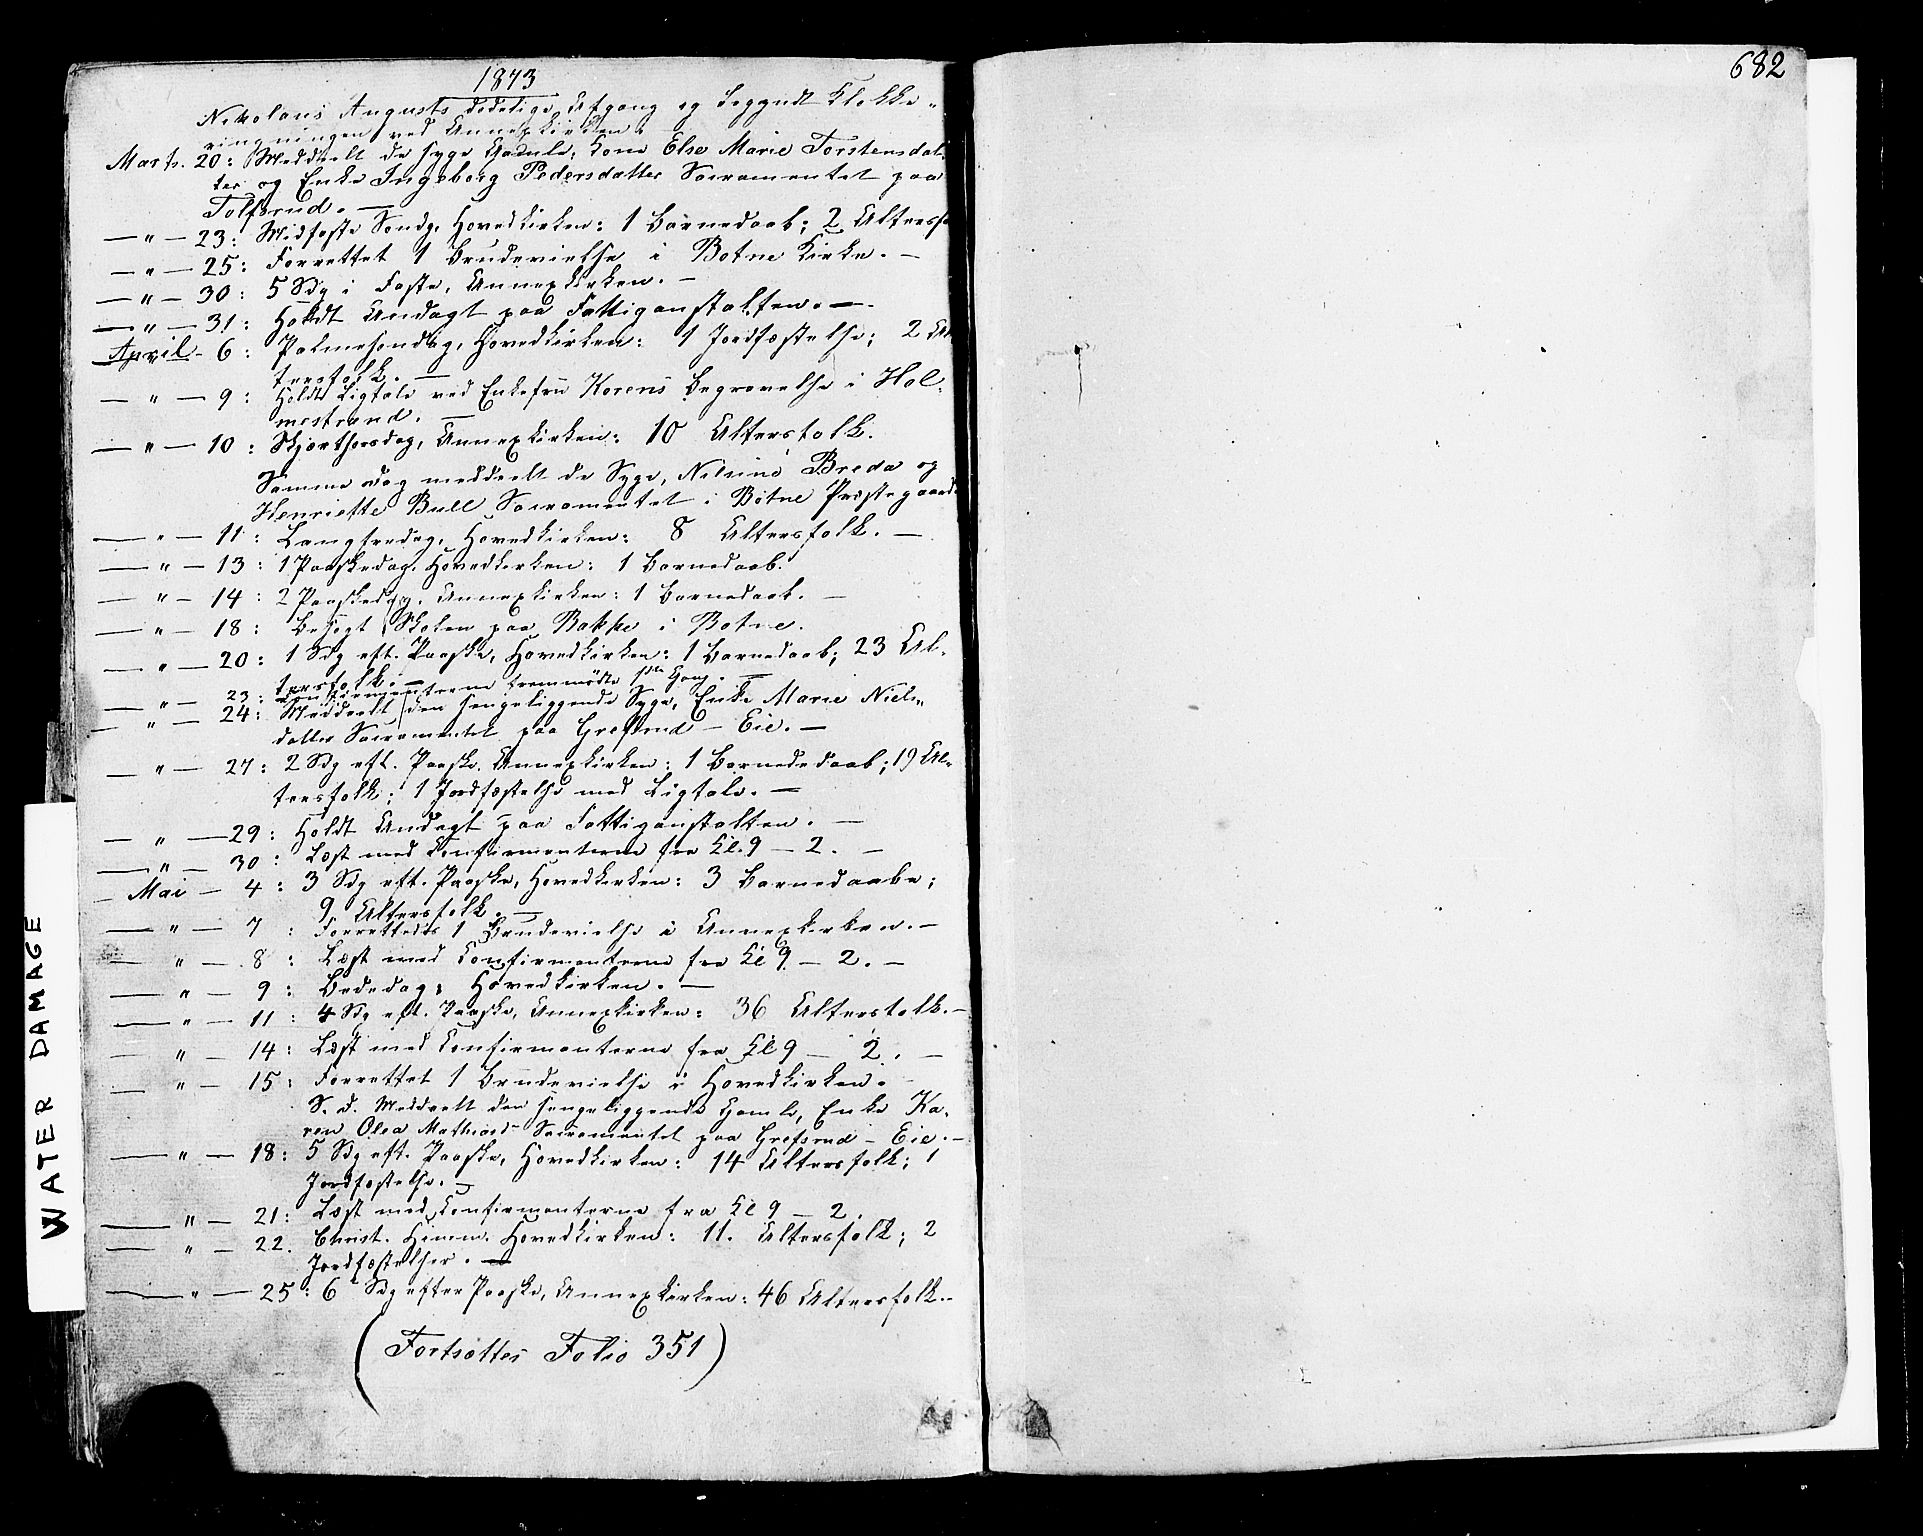 682
1873
Nikolaus Augusts dødelige Afgang og begyndt Klokke-
ringningen ved Annexkirken.
Marts. 20: Meddeelt de syge Gamle, Kone Else Marie Torstensdat-
ter og Enke Ingeborg Pedersdatter Sacramentet paa
Tolfsrud. —
— " — 23: Midfaste Søndg, Hovedkirken: 1 Barnedaab; 2 Altersfo
— " — 25: Forrettet 1 Brudevielse i Botne Kirke. —
— " — 30: 5 Sdg i Faste, Annexkirken. —
— " — 31: Holdt Andagt paa Fattiganstalten. —
April - 6: Palmesøndag, Hovedkirken: 1 Jordfæstelse; 2 Al-
tersfolk. —
— " — 9: Holdt Ligtale ved Enkefru Korens Begravelse i Hol-
mestrand. —
— " — 10: Skjærthorsdag, Annexkirken: 10 Altersfolk.
Samme Dag meddeelt de Syge, Nilsine Breda og
Henriette Bull Sacramentet i Botne Præstegaard.
— " — 11: Langfredag, Hovedkirken: 8 Altersfolk. —
— " — 13: 1 Paaskedag, Hovedkirken: 1 Barnedaab.
— " — 14: 2 Paaskedag, Annexkirken: 1 Barnedaab. —
— " — 18: Besøgt Skolen paa Bakke i Botne.
— " — 20: 1 Sdg eft. Paaske, Hovedkirken: 1 Barnedaab; 23 Al-
tersfolk. —
— " — 23: Confirmanterne fremmødte 1ste Gang. —
— " — 24: Meddeelt den sengeliggende Syge, Enke Marie Niels-
datter Sacramentet paa Grefsrud - Eie. —
— " — 27: 2 Sdg eft. Paaske, Annexkirken: 1 Barnedaab; 19 Al-
tersfolk; 1 Jordfæstelse med Ligtale. —
— " — 29: Holdt Andagt paa Fattiganstalten. —
— " — 30: Læst med Confirmanterne fra Kl. 9 — 2. —
— Mai — 4: 3 Sdg eft. Paaske, Hovedkirken: 3 Barnedaabe;
9 Altersfolk. —
— " — 7: Forrettedes 1 Brudevielse i Annexkirken. —
— " — 8: Læst med Confirmanterne fra Kl 9 — 2. —
— " — 9: Bededag: Hovedkirken. —
— " — 11: 4 Sdg eft. Paaske, Annexkirken: 36 Altersfolk. —
— " — 14: Læst med Confirmanterne fra Kl 9 — 2. —
— " — 15: Forrettet 1 Brudevielse i Hovedkirken.
S. d. Meddeelt den sengeliggende Gamle, Enke Ka-
ren Olea Mathiasd- Sacramentet paa Grefsrud - Eie. —
— " — 18: 5 Sdg eft. Paaske, Hovedkirken: 14 Altersfolk; 1
Jordfæstelse. —
— " — 21: Læst med Confirmanterne fra Kl 9 — 2.
— " — 22. Christ. Himm. Hovedkirken: 11. Altersfolk; 2
Jordfæstelser. —
— " — 25: 6 Sdg efter Paaske, Annexkirken: 46 Altersfolk. —
(Fortsættes Folio 351)
WATER DAMAGE